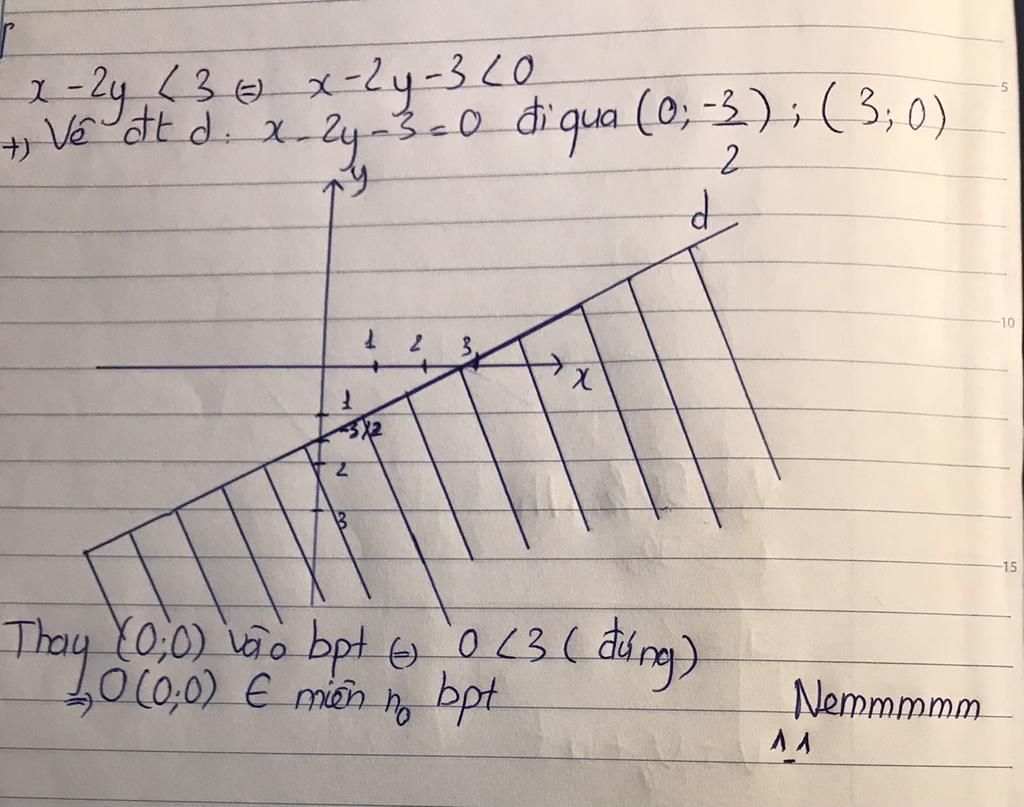 x - 2y < 3 ⇔ x - 2y - 3 < 0
+) Vẽ đt d: x - 2y - 3 = 0 đi qua (0; -3/2) ; (3; 0)
y
d
1 2 3
x
1
-3/2
2
3
Thay (0;0) vào bpt ⇔ 0 < 3 (đúng)
⇒ O(0;0) ∈ miền n₀ bpt
Nemmmmm
^_^
5
10
15